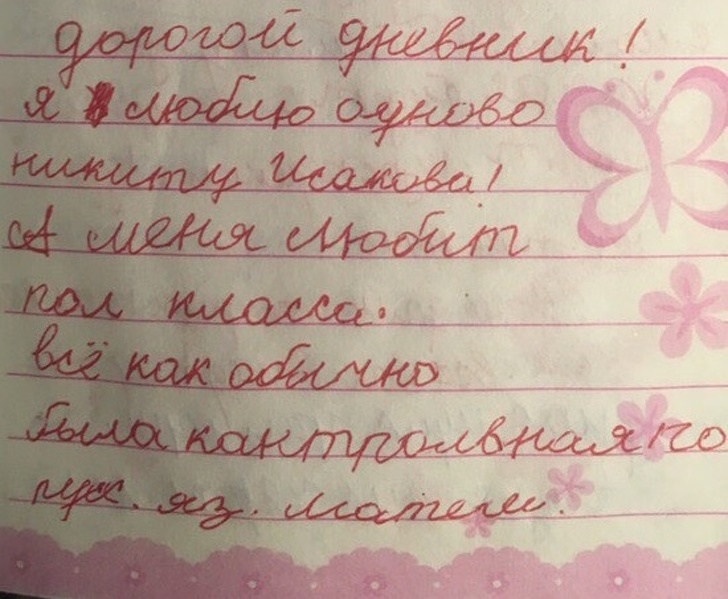 дорогой дневник!
я люблю одново
никиту Исакова!
А меня любит
пол класса.
всё как обычно
была кантрольная по
рус. яз. матем.